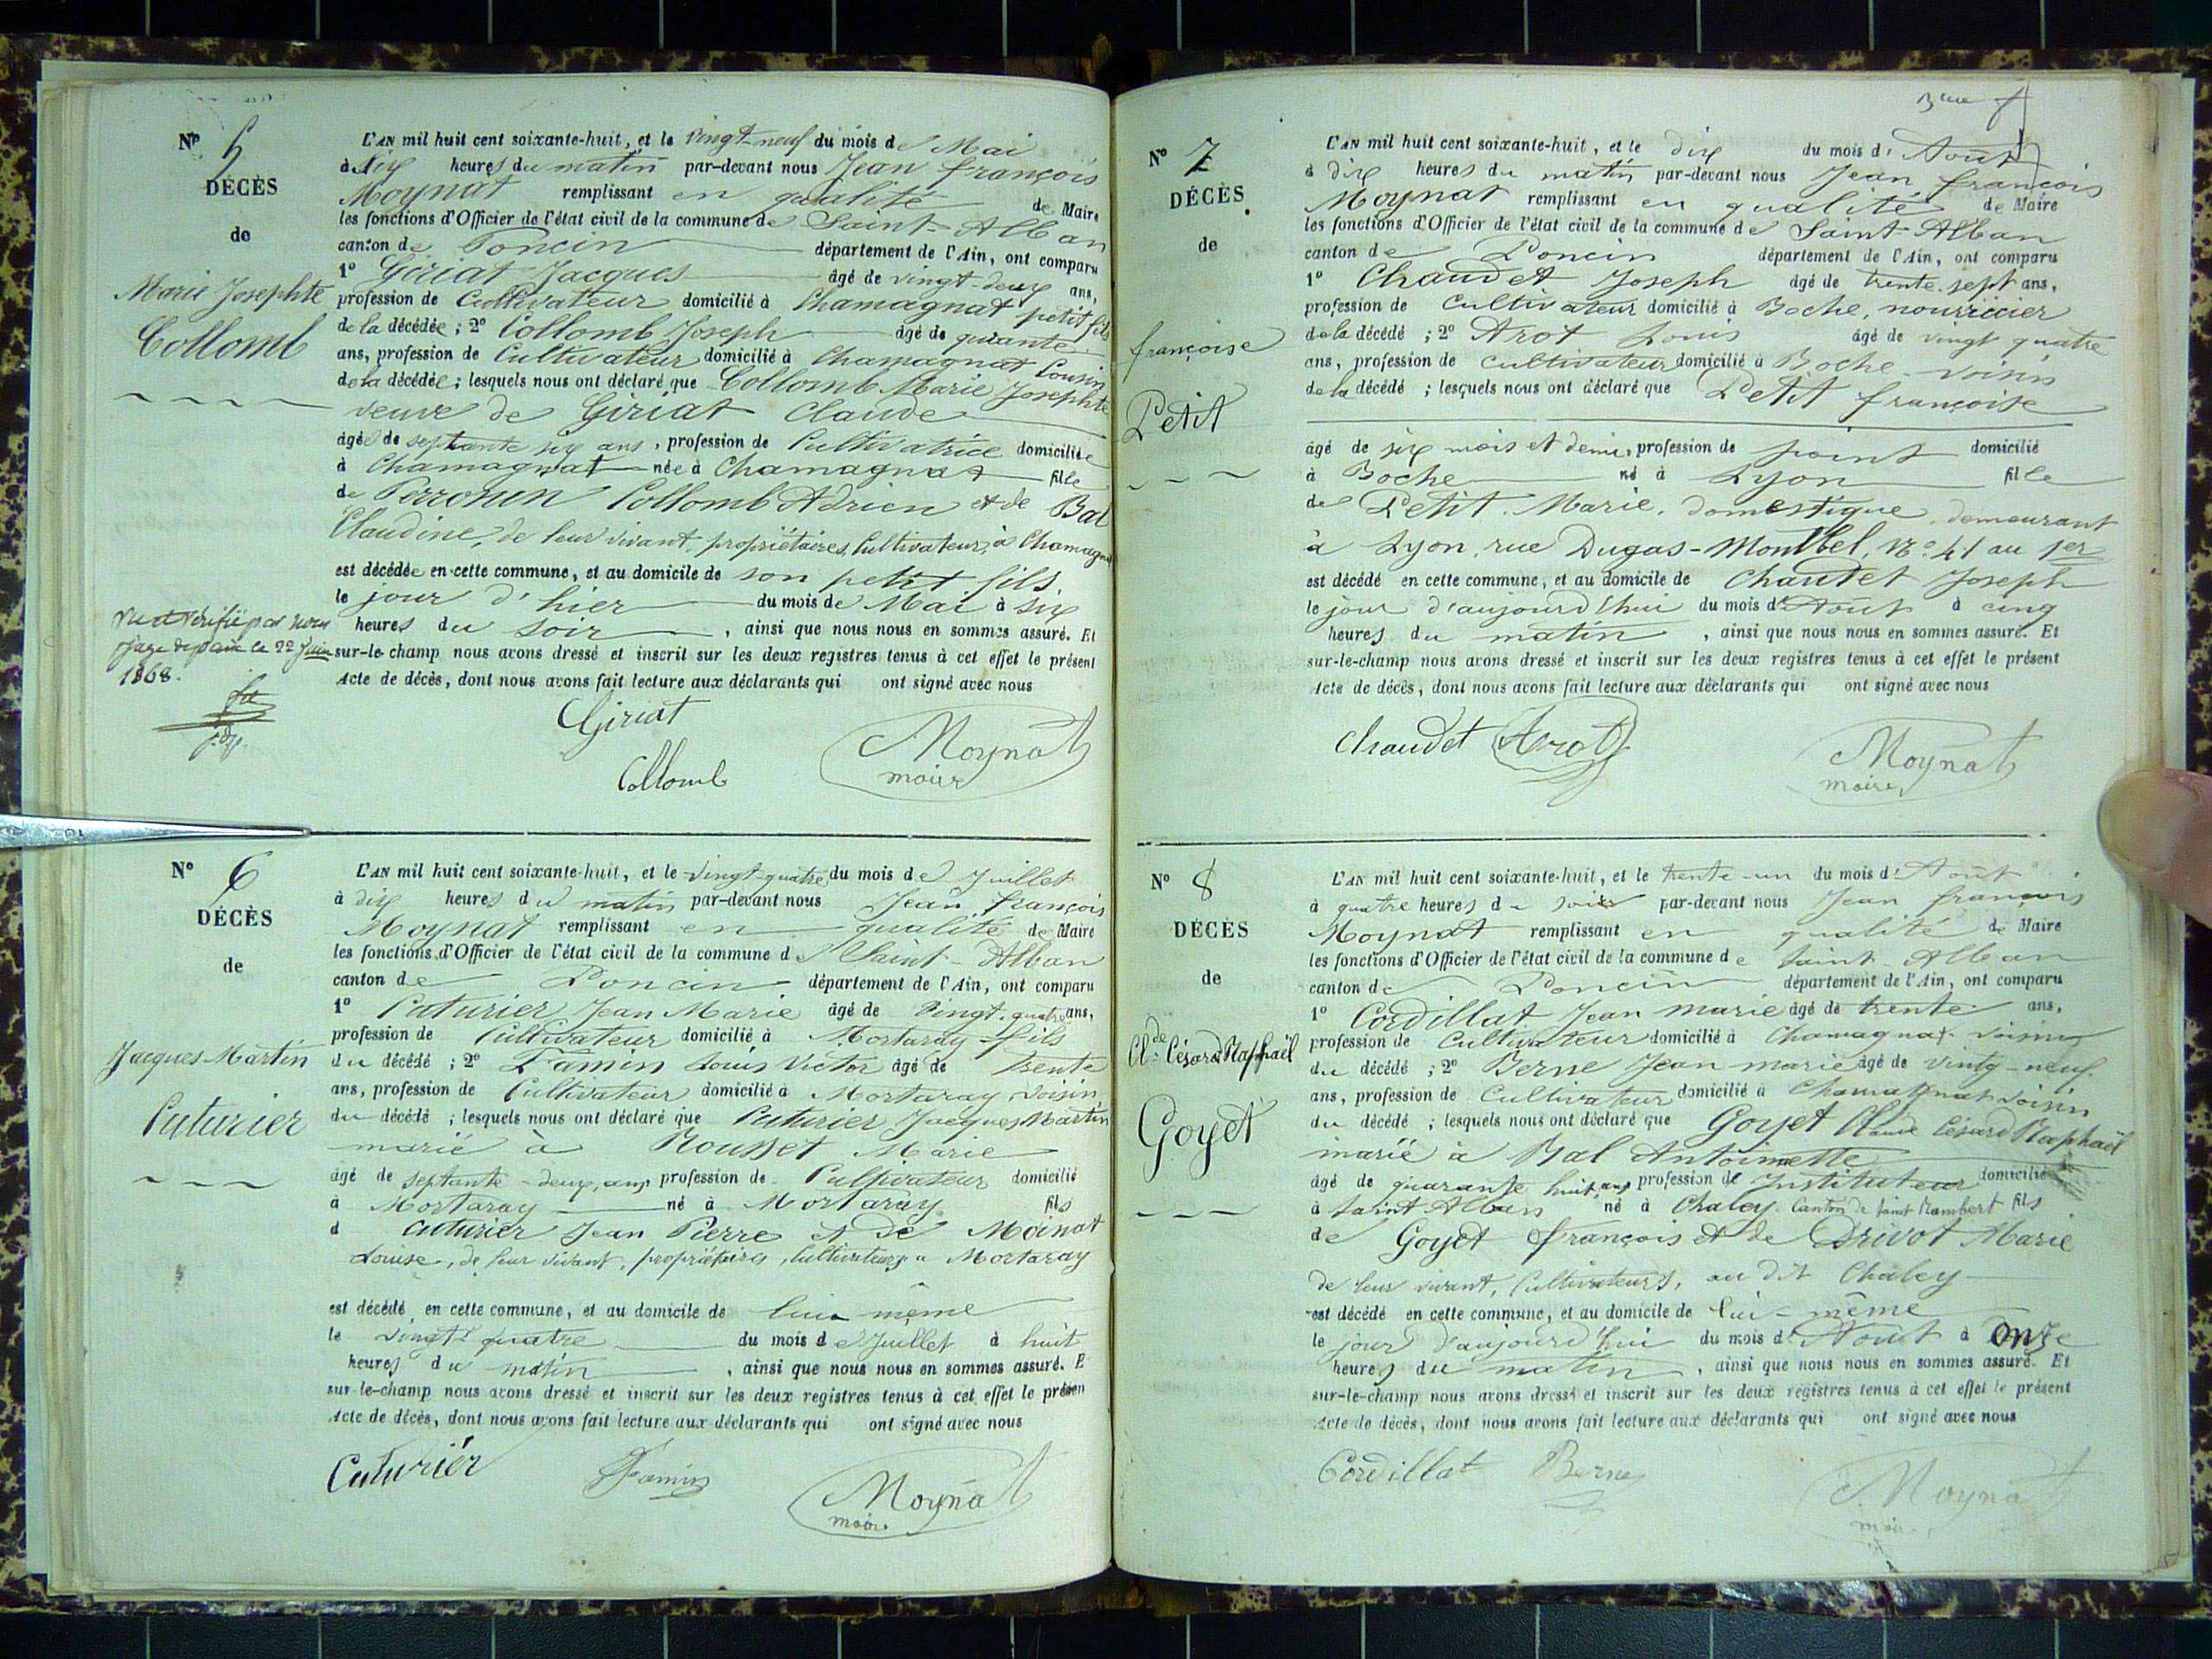 Nº 5
DÉCÈS
de
Marie Josephte
Collomb
L'AN mil huit cent soixante-huit, et le vingt-neuf du mois de Mai
à six heures du matin par-devant nous Jean françois
Moynat remplissant en qualité de Maire
les fonctions d'Officier de l'état civil de la commune de Saint-Alban
canton de Poncin département de l'Ain, ont comparu
1º Giriat Jacques âgé de vingt-deux ans,
profession de Cultivateur domicilié à Chamagnat petit fils
de la décédée ; 2º Collomb Joseph âgé de
ans, profession de Cultivateur domicilié à Chamagnat Cousin
de la décédée ; lesquels nous ont déclaré que Collomb Marie Josephte
veuve de Giriat Claude
âgée de septante six ans, profession de Cultivatrice domiciliée
à Chamagnat née à Chamagnat fille
de Perronin Collomb Adrien et de Bal
Claudine, de leur vivant, propriétaires, Cultivateurs, à Chamagnat
est décédée en cette commune, et au domicile de son petit fils
le jour d'hier du mois de Mai à six
heures du soir, ainsi que nous nous en sommes assuré. Et
sur-le-champ nous avons dressé et inscrit sur les deux registres tenus à cet effet le présent
Acte de décès, dont nous avons fait lecture aux déclarants qui ont signé avec nous
Vu et vérifié par nous
Juge de paix le 22 Juin
1868.
Giriat
Collomb
Moynat
maire
Nº 6
DÉCÈS
de
Jacques Martin
Cuturier
L'AN mil huit cent soixante-huit, et le vingt-quatre du mois de Juillet
à dix heures du matin par-devant nous Jean françois
Moynat remplissant en qualité de Maire
les fonctions d'Officier de l'état civil de la commune de Saint-Alban
canton de Poncin département de l'Ain, ont comparu
1º Cuturier Jean Marie âgé de vingt-quatre ans,
profession de Cultivateur domicilié à Mortaray fils
du décédé ; 2º Famin Louis Victor âgé de trente
ans, profession de Cultivateur domicilié à Mortaray, voisin
du décédé ; lesquels nous ont déclaré que Cuturier Jacques Martin
marié à Rousset Marie
âgé de septante-deux, ans profession de Cultivateur domicilié
à Mortaray né à Mortaray fils
d cuturier Jean Pierre et de Moinat
Louise, de leur vivant, propriétaires, Cultivateurs a Mortaray
est décédé en cette commune, et au domicile de lui même
le vingt quatre du mois de Juillet à huit
heures du matin, ainsi que nous nous en sommes assuré. E
sur-le-champ nous avons dressé et inscrit sur les deux registres tenus à cet effet le présen
Acte de décès, dont nous avons fait lecture aux déclarants qui ont signé avec nous
Cuturier Famin
Moynat
maire
Nº 7
DÉCÈS
de
françoise
Petit
L'AN mil huit cent soixante-huit, et le dix du mois d'Août
à dix heures du matin par-devant nous Jean françois
Moynat remplissant en qualité de Maire
les fonctions d'Officier de l'état civil de la commune de Saint-Alban
canton de Poncin département de l'Ain, ont comparu
1º Chaudet Joseph âgé de trente-sept ans,
profession de cultivateur domicilié à Boche, nourricier
de la décédé ; 2º Arot Louis âgé de vingt quatre
ans, profession de cultivateur domicilié à Boche - voisin
de la décédé ; lesquels nous ont déclaré que Petit françoise
âgé de six mois et demi, profession de point domicilié
à Boche né à Lyon fille
de Petit Marie, domestique, demeurant
à Lyon, rue Dugas-Montbel, Nº 41 au 1er
est décédé en cette commune, et au domicile de Chaudet Joseph
le jour d'aujourd'hui du mois d'Août à cinq
heures du matin, ainsi que nous nous en sommes assuré. Et
sur-le-champ nous avons dressé et inscrit sur les deux registres tenus à cet effet le présent
Acte de décès, dont nous avons fait lecture aux déclarants qui ont signé avec nous
Chaudet Arot
Moynat
maire
Nº 8
DÉCÈS
de
Clde César Raphaël
Goyet
L'AN mil huit cent soixante-huit, et le trente-un du mois d'Août
à quatre heures du soir par-devant nous Jean françois
Moynat remplissant en qualité de Maire
les fonctions d'Officier de l'état civil de la commune de Saint Alban
canton de Poncin département de l'Ain, ont comparu
1º Cordillat Jean marie âgé de trente ans,
profession de Cultivateur domicilié à Chamagnat voisin
du décédé ; 2º Berne Jean marie âgé de vingt-neuf
ans, profession de Cultivateur domicilié à Chamagnat voisin
du décédé ; lesquels nous ont déclaré que Goyet Claude César Raphaël
marié à Bal Antoinette
âgé de quarante huit, ans profession de Instituteur domicilié
à Saint Alban né à Chaley Canton de Saint Rambert fils
de Goyet françois et de Drivot Marie
de leur vivant, Cultivateurs, au dit Chaley
est décédé en cette commune, et au domicile de lui-même
le jour d'aujourd'hui du mois d'Août à Onze
heures du matin, ainsi que nous nous en sommes assuré. Et
sur-le-champ nous avons dressé et inscrit sur les deux registres tenus à cet effet le présent
Acte de décès, dont nous avons fait lecture aux déclarants qui ont signé avec nous
Cordillat Berne
Moynat
maire